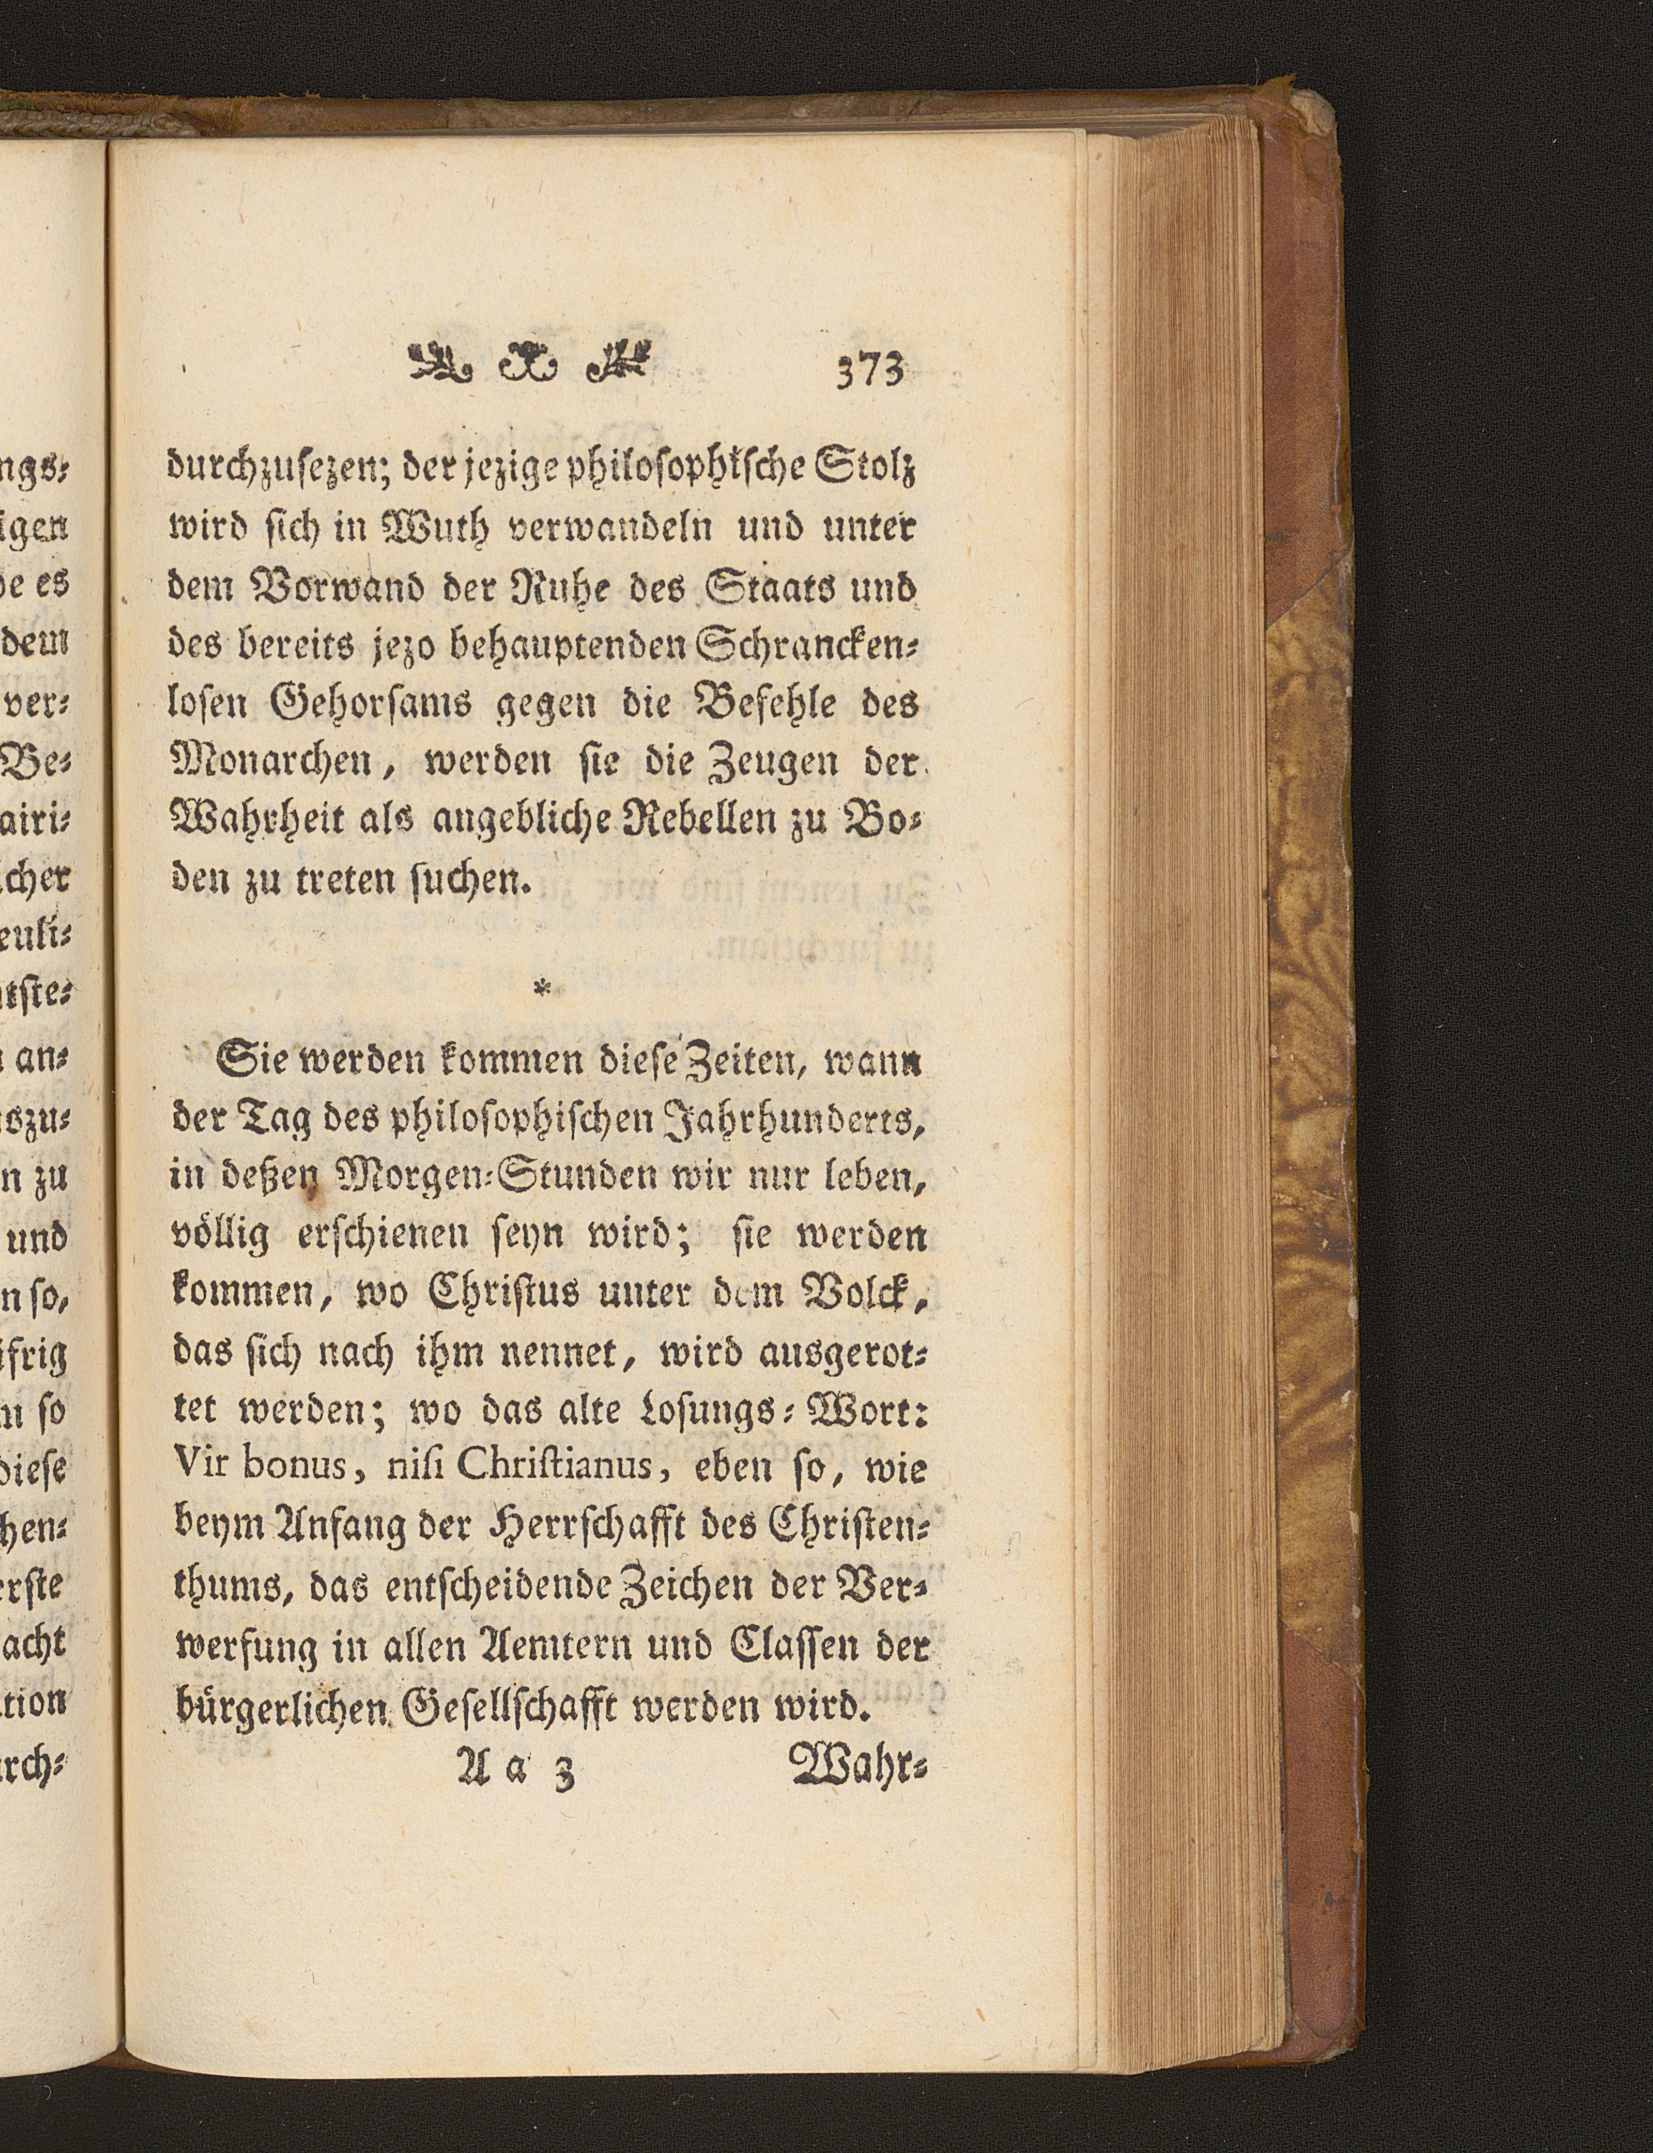 373
durchzuſezen; der jezige philoſophiſche Stolz
wird ſich in Wuth verwandeln und unter
dem Vorwand der Ruhe des Staats und
des bereits jezo behauptenden Schrancken⸗
loſen Gehorſams gegen die Befehle des
Monarchen, werden ſie die Zeugen der
Wahrheit als angebliche Rebellen zu Bo⸗
den zu treten ſuchen.
*
Sie werden kommen dieſe Zeiten, wann
der Tag des philoſophiſchen Jahrhunderts,
in deßen Morgen⸗Stunden wir nur leben,
völlig erſchienen ſeyn wird; ſie werden
kommen, wo Chriſtus unter dem Volck,
das ſich nach ihm nennet, wird ausgerot⸗
tet werden; wo das alte Loſungs⸗Wort:
Vir bonus, niſi Chriſtianus, eben ſo, wie
beym Anfang der Herrſchafft des Chriſten⸗
thums, das entſcheidende Zeichen der Ver⸗
werfung in allen Aemtern und Claſſen der
bürgerlichen Geſellſchafft werden wird.
A a 3 Wahr⸗
ngs⸗
igen
de es
dem
ver⸗
Be⸗
airi⸗
cher
euli⸗
tſte⸗
an⸗
szu⸗
n zu
und
n ſo,
ifrig
ſo
dieſe
hen⸗
erſte
acht
tion
rch⸗